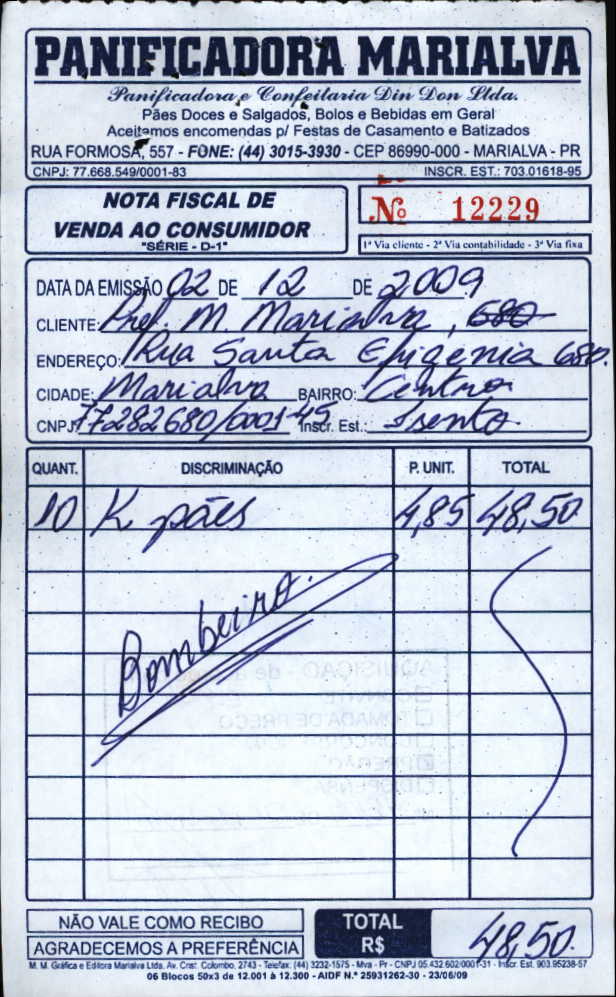 PANIFICADORA MARIALVA
Panificadora e Confeitaria Din Don Ltda.
Pães Doces e Salgados, Bolos e Bebidas em Geral
Aceitamos encomendas p/ Festas de Casamento e Batizados
RUA FORMOSA, 557 - FONE: (44) 3015-3930 - CEP 86990-000 - MARIALVA - PR
CNPJ: 77.668.549/0001-83 INSCR. EST.: 703.01618-95
NOTA FISCAL DE
VENDA AO CONSUMIDOR
"SÉRIE - D-1"
Nº 12229
1ª Via cliente - 2ª Via contabilidade - 3ª Via fixa
DATA DA EMISSÃO 02 DE 12 DE 2009
CLIENTE: Pref. M. Marialva, 680
ENDEREÇO: Rua Santa Efigenia 680.
CIDADE: Marialva BAIRRO: Centro
CNPJ 77282680/0001-45 Inscr. Est.: Isento
QUANT. DISCRIMINAÇÃO P. UNIT. TOTAL
10 K pães 4,85 48,50
Bombeiro.
AQUISIÇÃO - de
CONVITE
TOMADA DE PREÇO
PREGÃO
NÃO VALE COMO RECIBO
AGRADECEMOS A PREFERÊNCIA
TOTAL
R$ 48,50.
M. M. Gráfica e Editora Marialva Ltda. Av. Crist. Colombo, 2743 - Telefax: (44) 3232-1575 - Mva - Pr - CNPJ 05.432.602/0001-31 - Inscr. Est. 903.95238-57
06 Blocos 50x3 de 12.001 à 12.300 - AIDF N.º 25931262-30 - 23/06/09